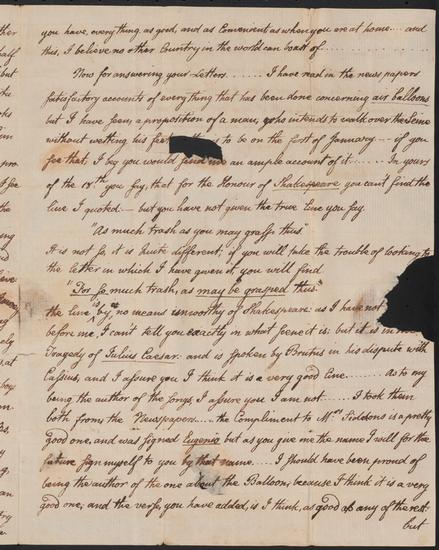 you have, everything as good, and as Convenient as when you are at home .... and
this, I believe no other Country in the world can boast of ..........
Now for answering your Letters ...... I have read in the news papers
satisfactory accounts of everything that has been done concerning air balloons
but I have seen, a proposition of a man, who intends to walk over the Seine
without wetting his feet to be on the first of January — if you
see that, I beg you would send me an ample account of it ..... In yours
of the 18th you say, that for the Honour of Shakespeare you can't find the
line I quoted — but you have not given the true line you say.
"As much trash as you may grasp thus."
It is not so, it is quite different, if you will take the trouble of looking to
the letter in which I have given it, you will find
"For so much trash, as may be grasped thus."
the line is by no means unworthy of Shakespeare as I have not
before me, I can't tell you exactly in what scene it is: but it is in
Tragedy of Julius Caesar. and is spoken by Brutus in his dispute with
Cassius, and I assure you I think it is a very good line ..... as to my
being the author of the songs, I assure you I am not .... I took them
both from the Newspapers .... the Compliment to Mrs Siddons is a pretty
good one, and was signed Eugenio but as you give me the name I will for the
future sign myself to you by that name .... I should have been proud of
being the author of the one about the Balloon, because I think it is a very
good one, and the verse, you have added, is I think, as good as any of the rest
but